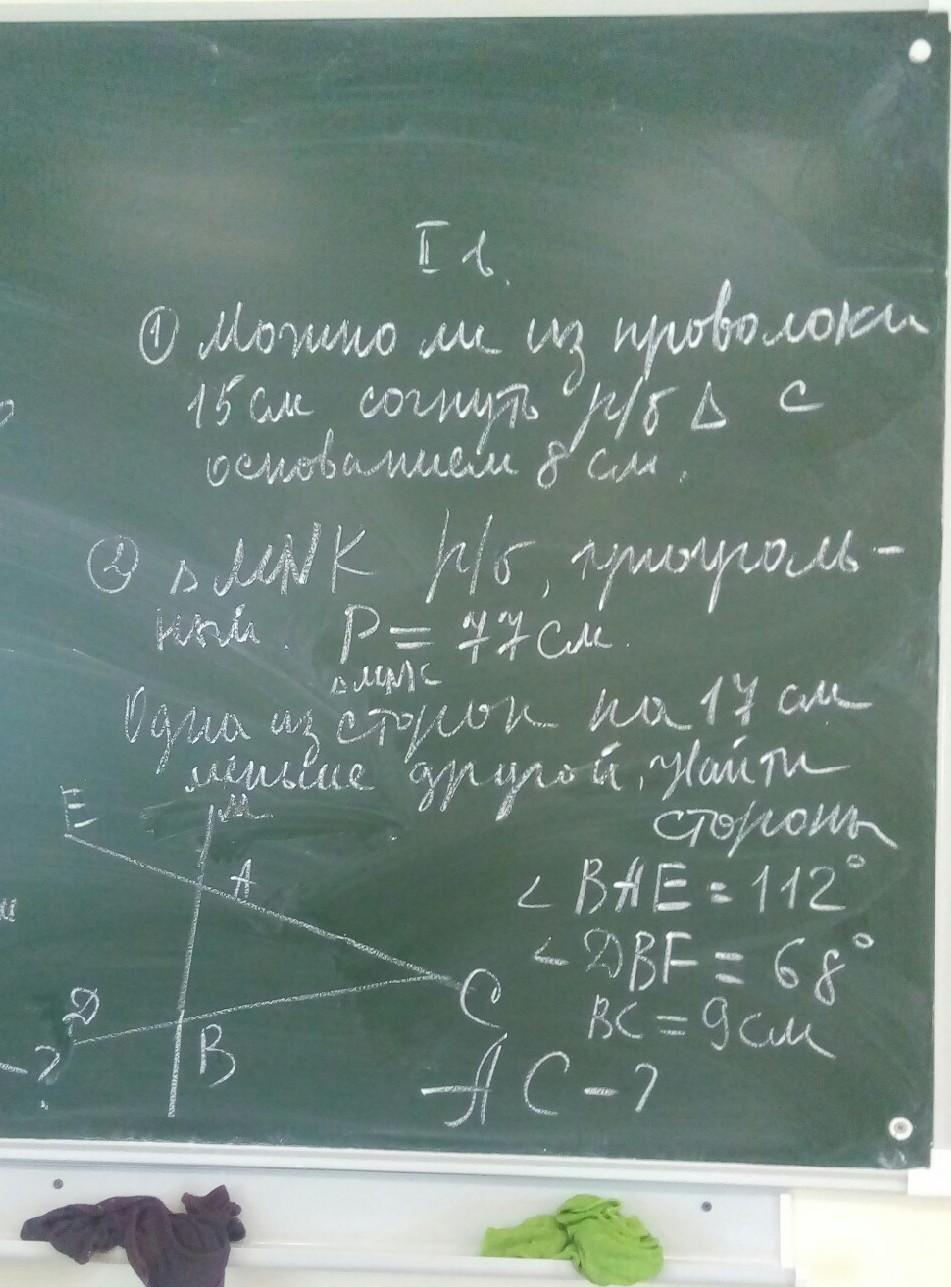 II в.
① Можно ли из проволоки
15 см согнуть р/б Δ с
основанием 8 см.
② Δ MNK р/б, триуголь-
ный. P = 77 см.
Δ MNK
Одна из сторон на 17 см
меньше другой. Найти
стороны
E
M
A
D
B
C
∠ BAE = 112°
∠ DBF = 68°
BC = 9 см
AC - ?
- ?